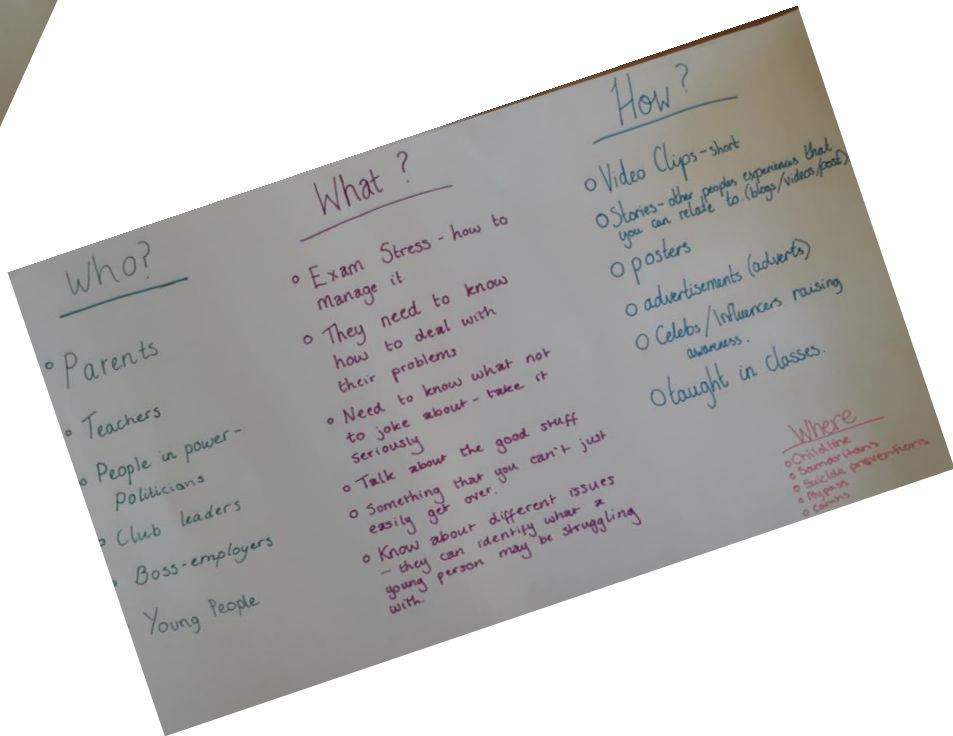 Who?
Parents
Teachers
People in power -
Politicians
Club leaders
Boss-employers
Young People
What?
Exam Stress - how to
manage it
They need to know
how to deal with
their problems
Need to know what not
to joke about - take it
seriously
Talk about the good stuff
Something that you can't just
easily get over.
Know about different issues
- they can identify what a
young person may be struggling
with.
How?
Video Clips - short
Stories - other peoples experiences that
you can relate to. (blogs/videos/post)
posters
advertisements (adverts)
Celebs/Influencers raising
awareness.
taught in classes.
Where
Childline
Samaritans
Suicide preventions
Mypas
camhs